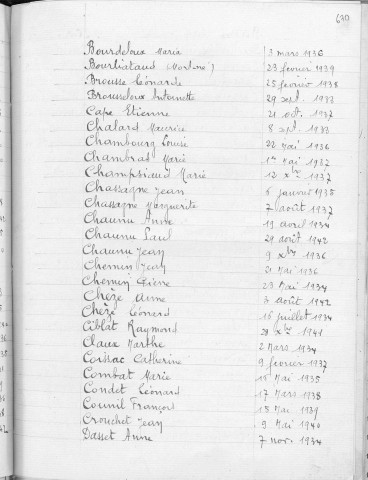 Bourdeloux Maria 3 mars 1936
Bourliataud (Mort-né) 23 février 1939
Brousse Léonarde 25 février 1938
Brousseloux Antoinette 29 sept. 1933
Cape Etienne 21 oct. 1937
Chalard Maurice 8 sept. 1933
Chambourg Louise 22 Mai 1936
Chambras Marie 1er Mai 1937
Champseaud Marie 12 Xbre 1937
Chassagne Jean 6 janvier 1935
Chassagne Marguerite 7 août 1937
Chaunu Anne 19 avril 1934
Chaunu Paul 29 août 1942
Chaunu Jean 9 Xbre 1936
Chemin Jean 21 Mai 1936
Chemin Pierre 23 Mai 1934
Chèze Anne 3 août 1942
Chèze Léonard 16 juillet 1934
Ciblat Raymond 28 Xbre 1941
Claux Marthe 2 Mars 1934
Coissac Catherine 9 février 1937
Combat Marie 16 Mai 1935
Condet Léonard 17 Mars 1938
Counil François 18 Mai 1939
Crouchet Jean 9 Mai 1940
Dasset Anne 7 nov. 1934